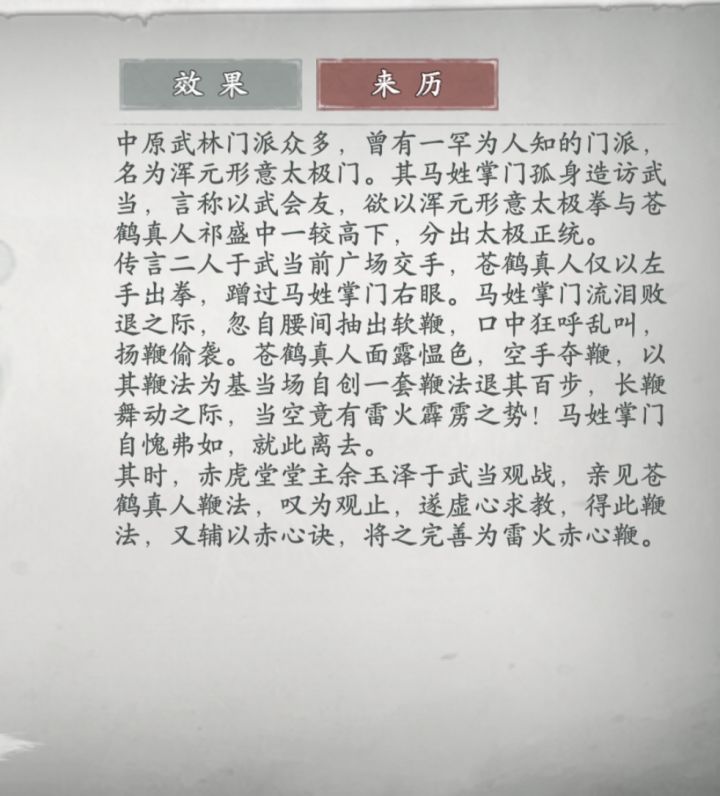 效果 来历
中原武林门派众多，曾有一罕为人知的门派，
名为浑元形意太极门。其马姓掌门孤身造访武
当，言称以武会友，欲以浑元形意太极拳与苍
鹤真人祁盛中一较高下，分出太极正统。
传言二人于武当前广场交手，苍鹤真人仅以左
手出拳，蹭过马姓掌门右眼。马姓掌门流泪败
退之际，忽自腰间抽出软鞭，口中狂呼乱叫，
扬鞭偷袭。苍鹤真人面露愠色，空手夺鞭，以
其鞭法为基当场自创一套鞭法退其百步，长鞭
舞动之际，当空竟有雷火霹雳之势！马姓掌门
自愧弗如，就此离去。
其时，赤虎堂堂主余玉泽于武当观战，亲见苍
鹤真人鞭法，叹为观止，遂虚心求教，得此鞭
法，又辅以赤心诀，将之完善为雷火赤心鞭。